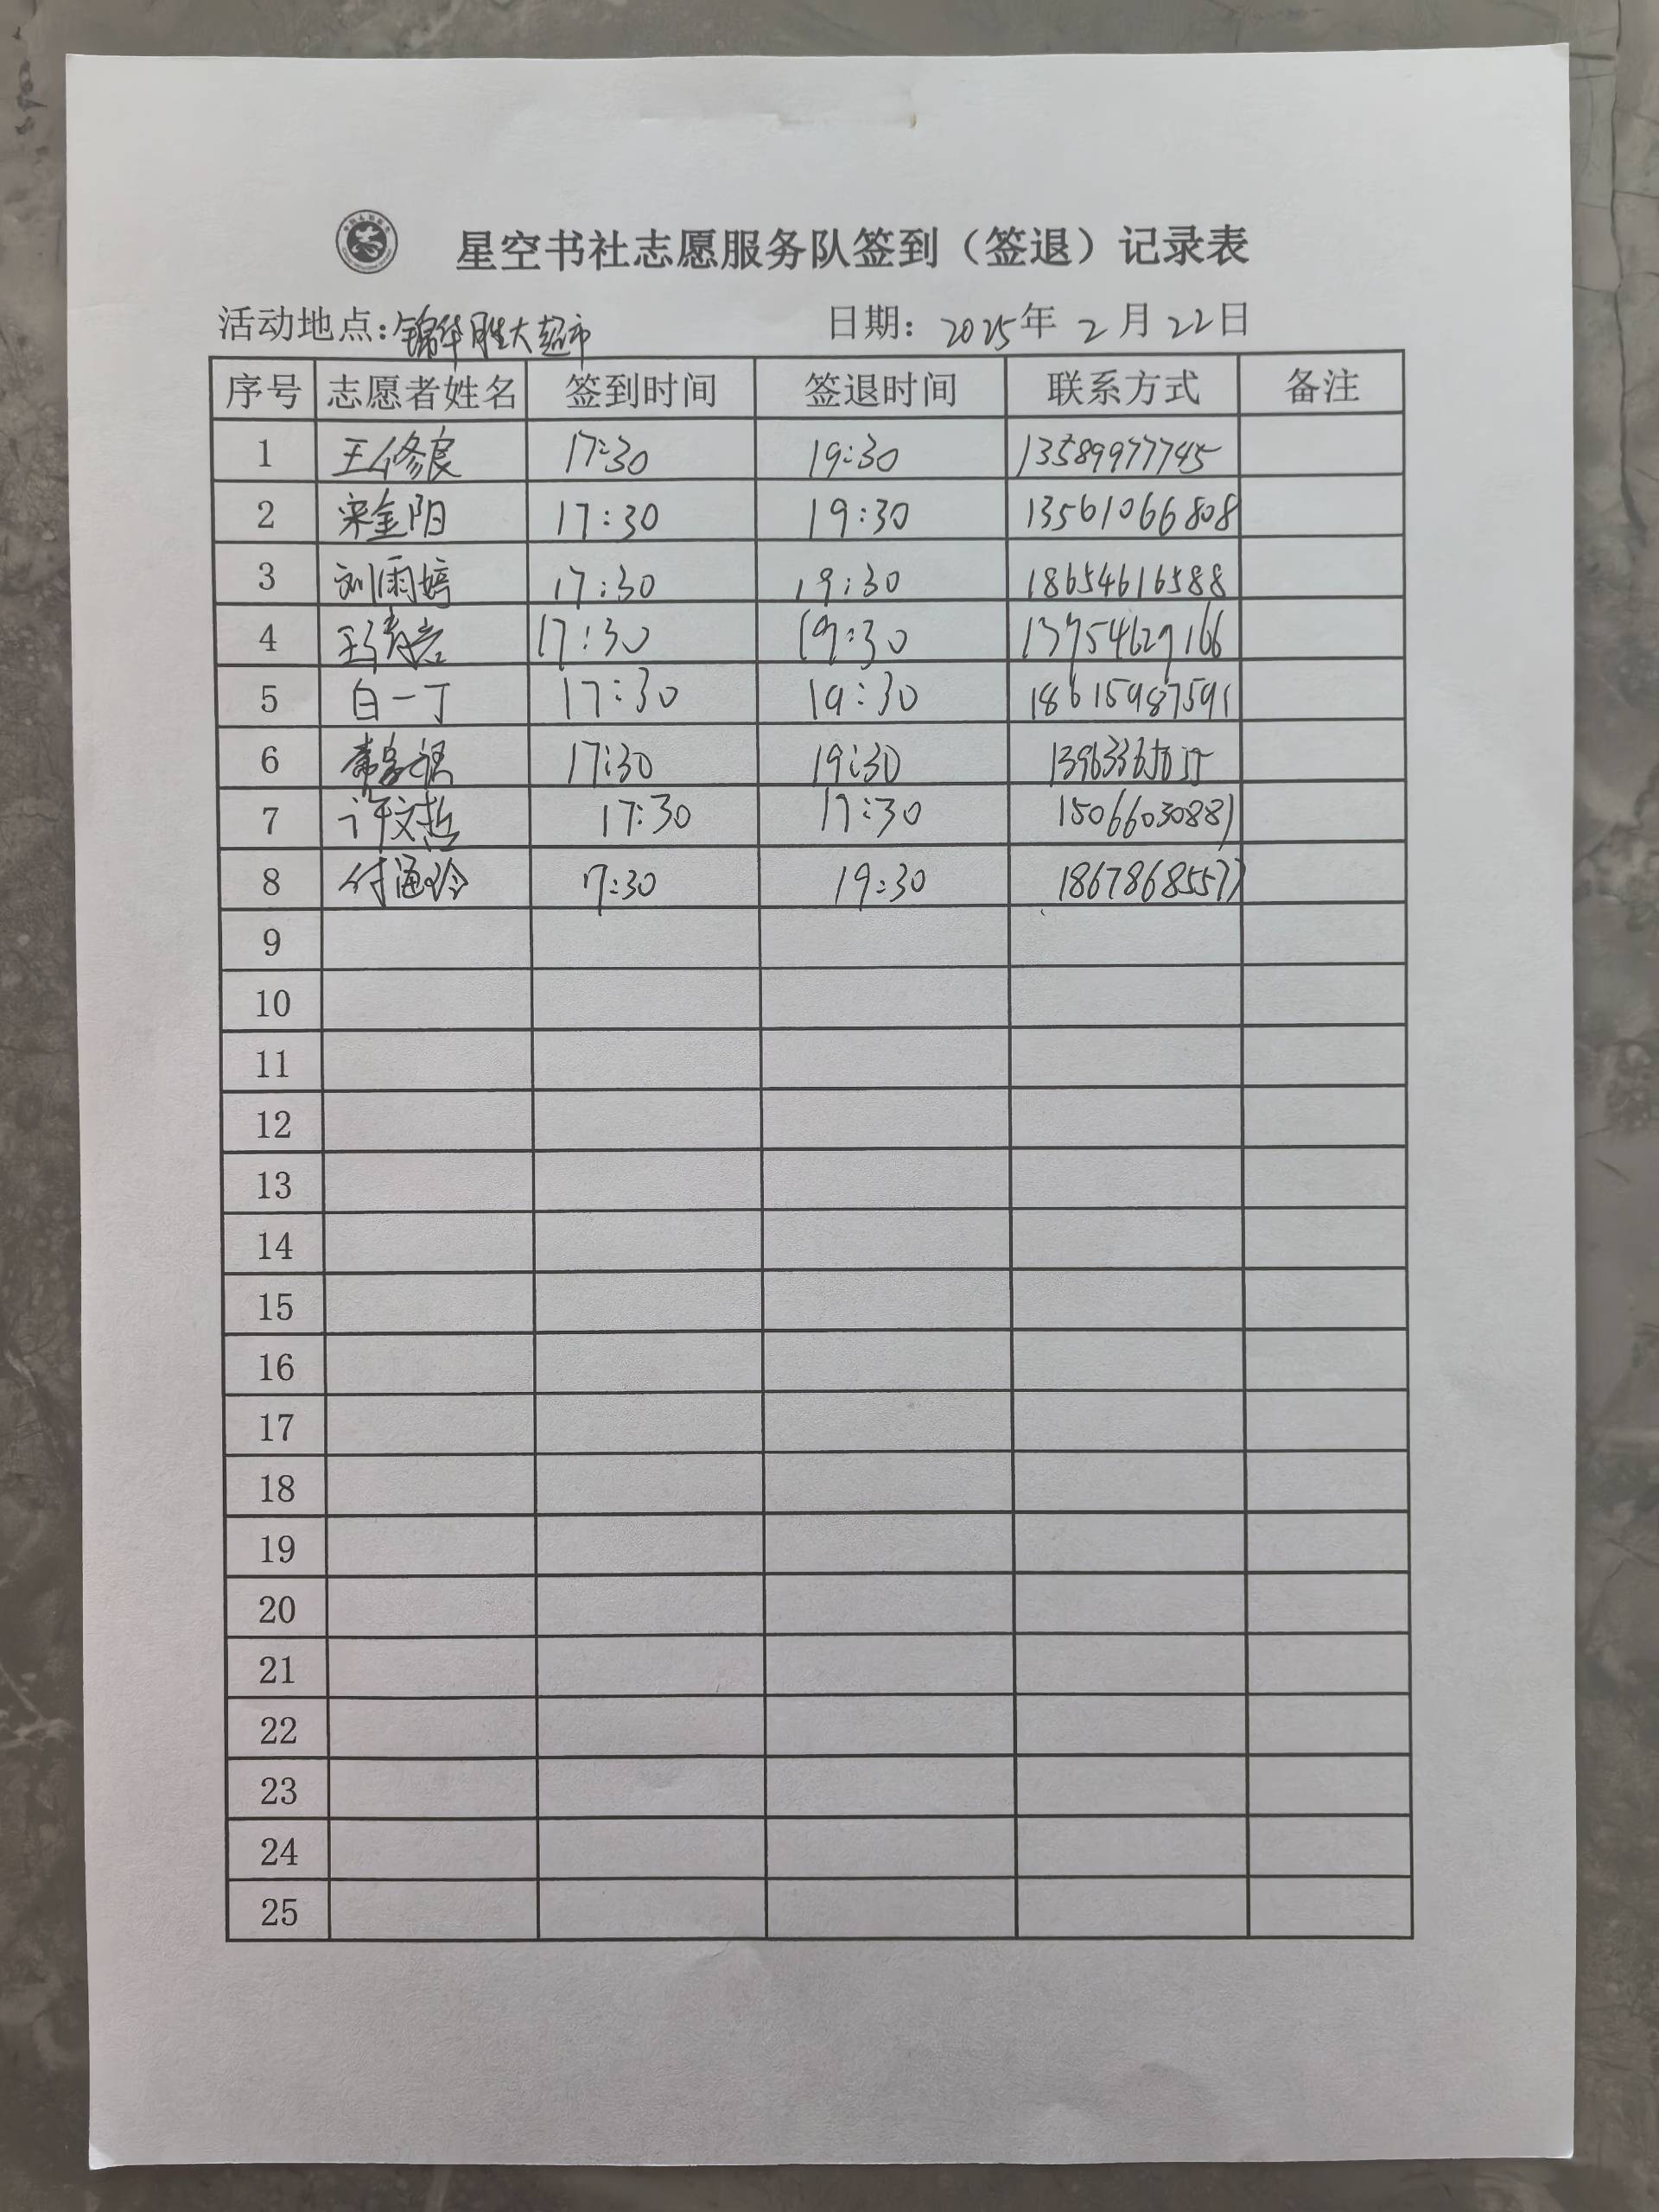 星空书社志愿服务队签到（签退）记录表
活动地点:锦华胜大超市 日期：2025年 2 月 22日
序号 志愿者姓名 签到时间 签退时间 联系方式 备注
1 王修良 17:30 19:30 13589977745
2 宋金阳 17:30 19:30 13561066808
3 刘雨婷 17:30 19:30 18654616588
4 17:30 19:30 13754629166
5 白一丁 17:30 19:30 18615987591
6 17:30 19:30
7 许文哲 17:30 17:30 15066030881
8 付通玲 17:30 19:30 18678685577
9
10
11
12
13
14
15
16
17
18
19
20
21
22
23
24
25